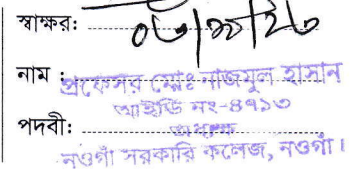 স্বাক্ষরঃ
নাম : প্রফেসর মোঃ নাজমুল হাসান
আইডি নং-৪৭১৩
পদবীঃ অধ্যক্ষ
নওগাঁ সরকারি কলেজ, নওগাঁ।